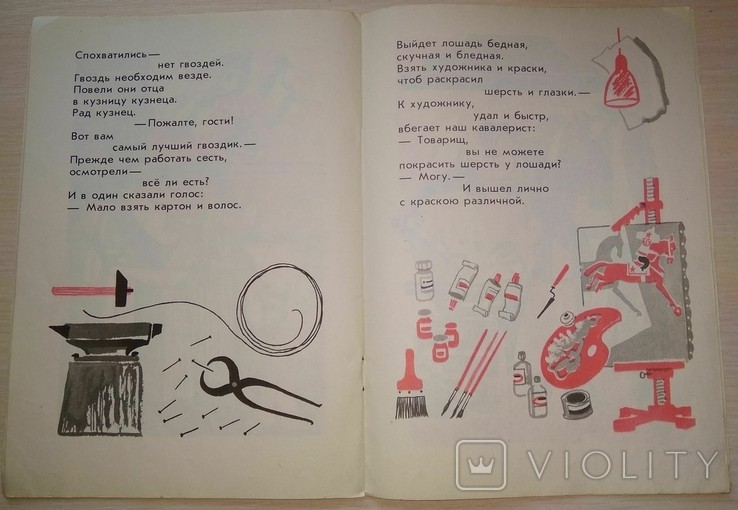 Спохватились—
нет гвоздей.
Гвоздь необходим везде.
Повели они отца
в кузницу кузнеца.
Рад кузнец.
—Пожалте, гости!
Вот вам
самый лучший гвоздик.—
Прежде чем работать сесть,
осмотрели—
всё ли есть?
И в один сказали голос:
— Мало взять картон и волос.
Выйдет лошадь бедная,
скучная и бледная.
Взять художника и краски,
чтоб раскрасил
шерсть и глазки.—
К художнику,
удал и быстр,
вбегает наш кавалерист:
— Товарищ,
вы не можете
покрасить шерсть у лошади?
— Могу.—
И вышел лично
с краскою различной.
VIOLITY